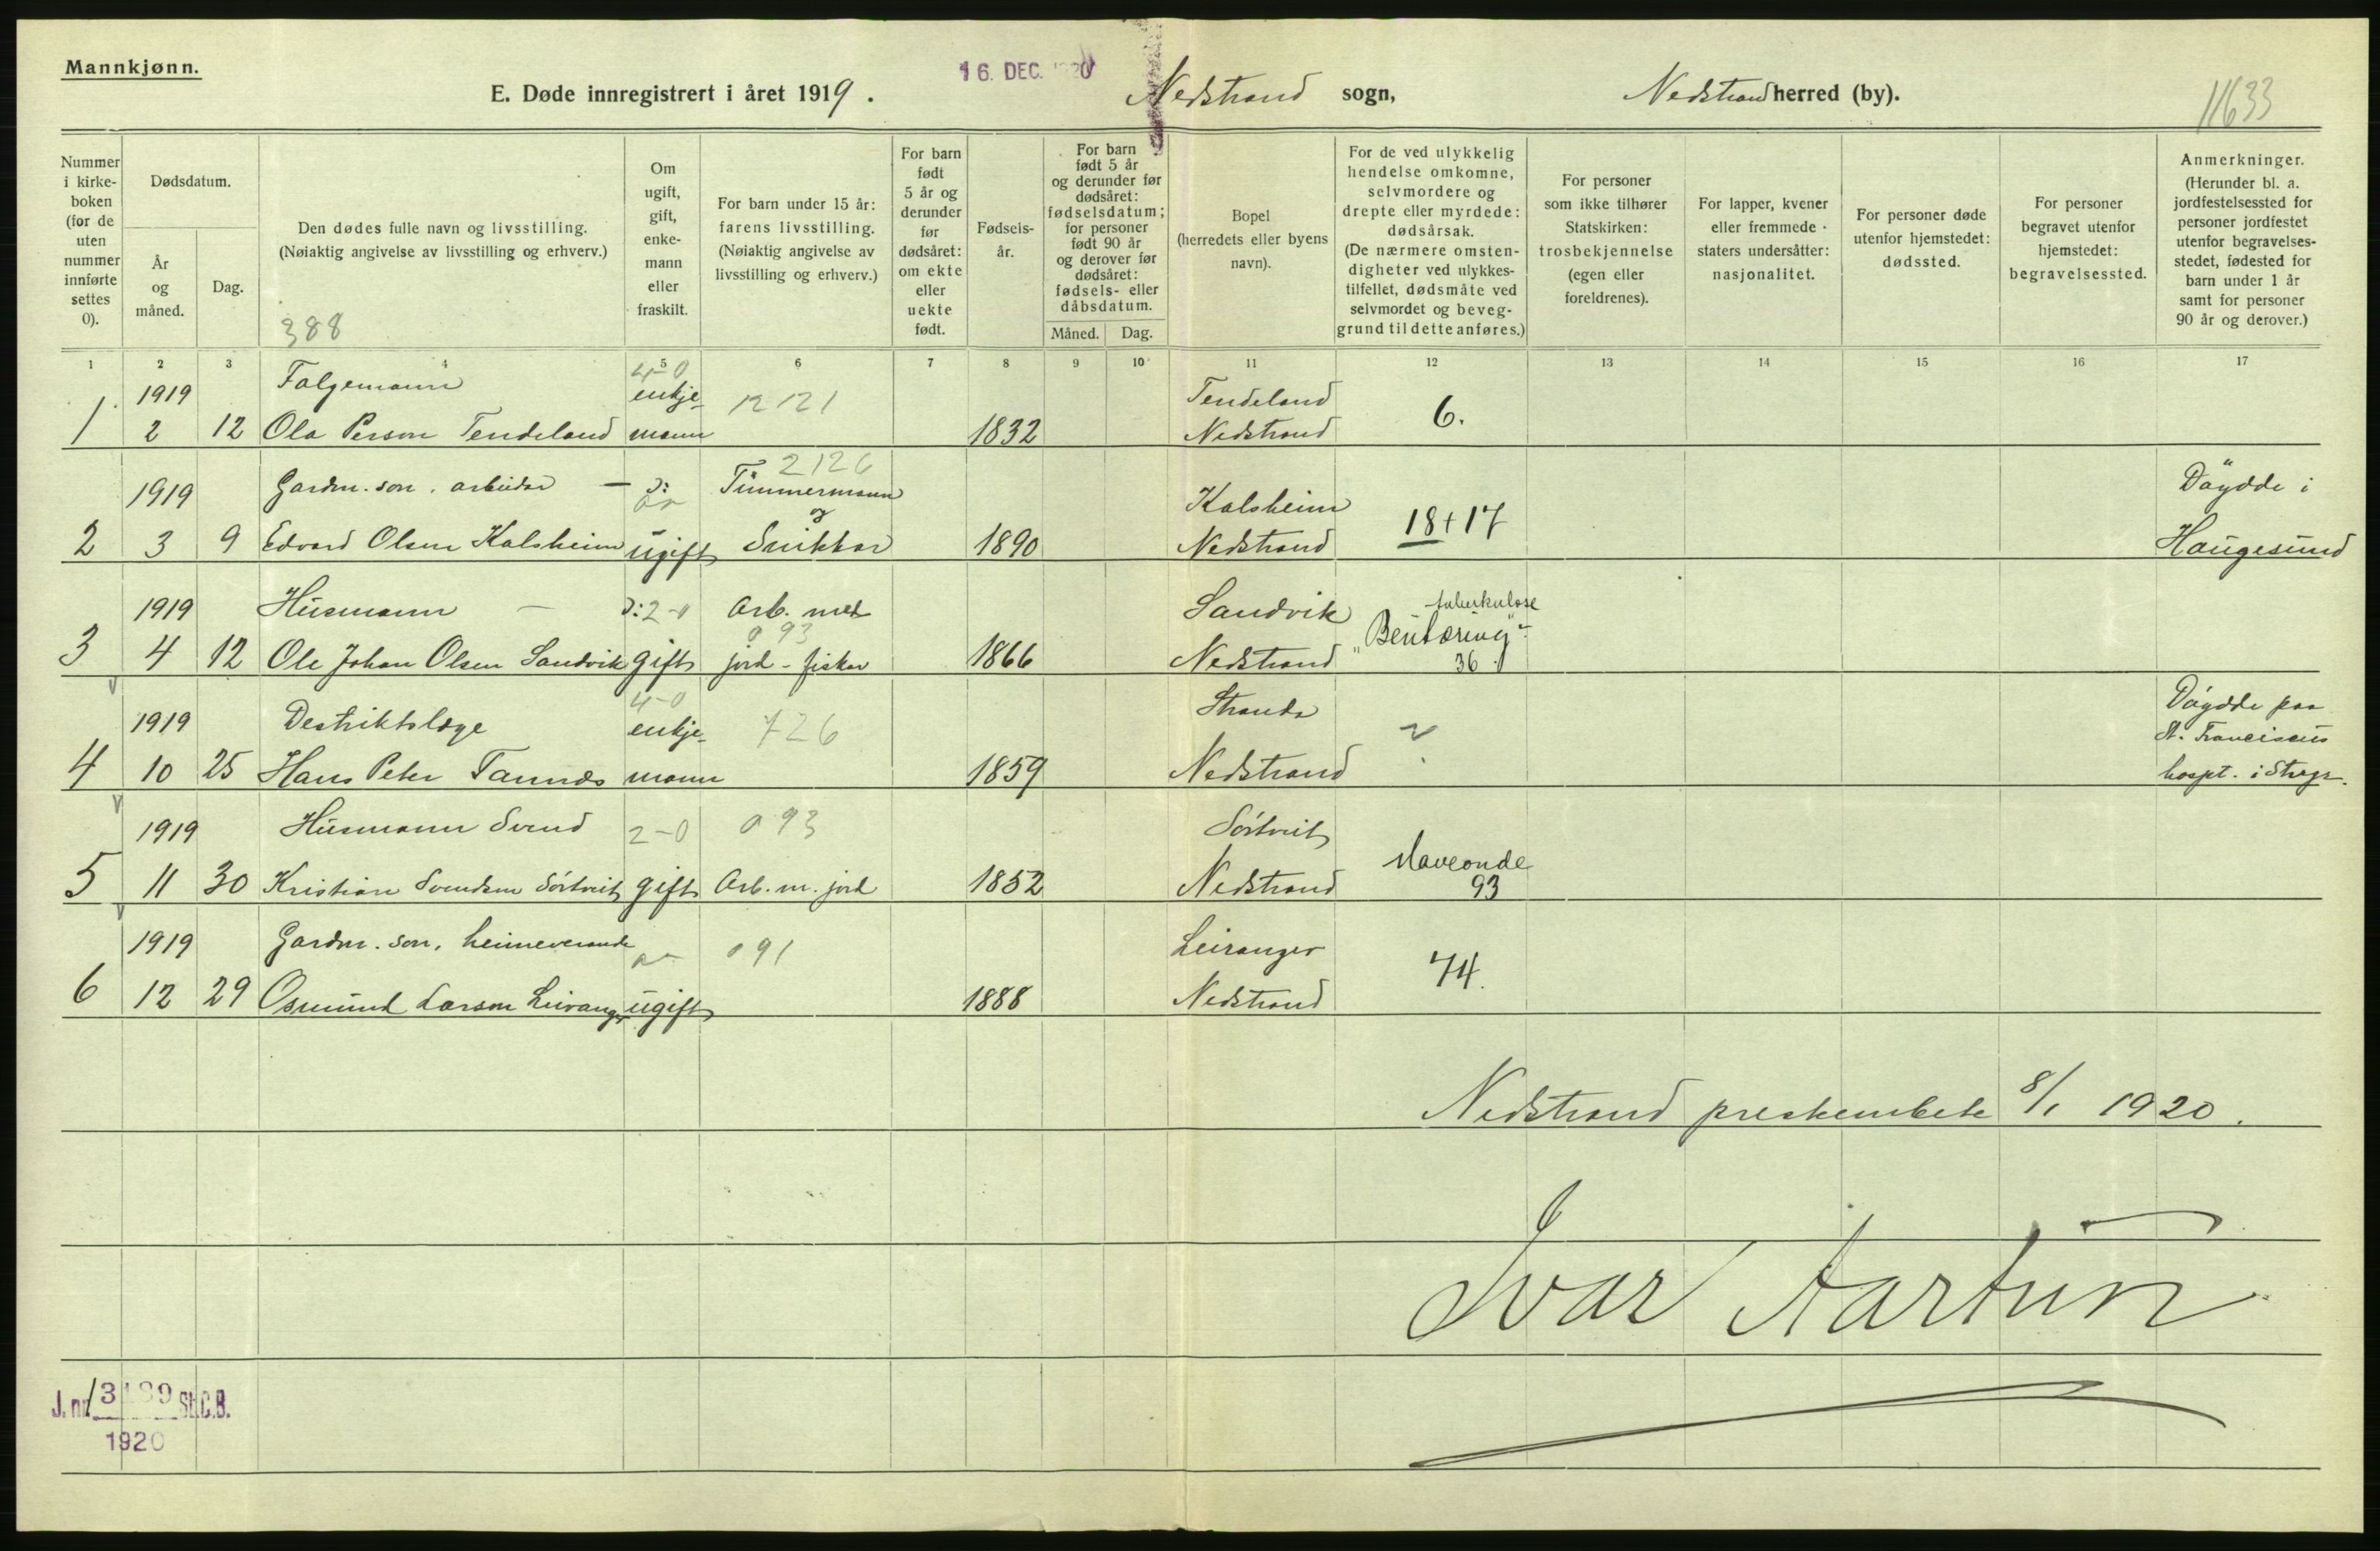 Mannkjønn.
E. Døde innregistrert i året 1919.
16. DEC. 1920
Nedstrand sogn,
Nedstrand herred (by).
11633
Nummer i kirke-boken (for de uten nummer innførte settes 0).
Dødsdatum.
År og måned.
Dag.
Den dødes fulle navn og livsstilling.
(Nøiaktig angivelse av livsstilling og erhverv.)
388
Om ugift, gift, enke-mann eller fraskilt.
For barn under 15 år: farens livsstilling. (Nøiaktig angivelse av livsstilling og erhverv.)
For barn født 5 år og derunder før dødsåret: om ekte eller uekte født.
Fødsels-år.
For barn født 5 år og derunder før dødsåret: fødselsdatum; for personer født 90 år og derover før dødsåret: fødsels- eller dåbsdatum.
Måned. Dag.
Bopel (herredets eller byens navn).
For de ved ulykkelig hendelse omkomne, selvmordere og drepte eller myrdede: dødsårsak. (De nærmere omsten-digheter ved ulykkes-tilfellet, dødsmåte ved selvmordet og beveg-grund til dette anføres.)
For personer som ikke tilhører Statskirken: trosbekjennelse (egen eller foreldrenes).
For lapper, kvener eller fremmede staters undersåtter: nasjonalitet.
For personer døde utenfor hjemstedet: dødssted.
For personer begravet utenfor hjemstedet: begravelsessted.
Anmerkninger. (Herunder bl. a. jordfestelsessted for personer jordfestet utenfor begravelses-stedet, fødested for barn under 1 år samt for personer 90 år og derover.)
1 2 3 4 5 6 7 8 9 10 11 12 13 14 15 16 17
1919 Folgemann 4-0 enkje- 12121 Tendeland 6.
1 2 12 Ola Person Tendeland mann 1832 Nedstrand
2126
1919 Gardm. son. arbeidar — ɔ: Timmermann Kalsheim 18+17 Döydde i
og
2 3 9 Edvard Olsen Kalsheim ugift Snikkar 1890 Nedstrand Haugesund
1919 Husmann — ɔ: 2-0 Arb. med Sandvik tuberkulose
093 "Bentæring"
3 4 12 Ole Johan Olsen Sandvik gift jord - fiskar 1866 Nedstrand 36.
1919 Destriktslæge 4-0 enkje- 726 Stranda ? Döydde paa
St. Franciscus
4 10 25 Hans Peter Tannæs mann 1859 Nedstrand hospt. i Stvgr.
1919 Husmann Svend 2-0 093 Sörtveit Maveonde
5 11 30 Kristian Svendsen Sörtveit gift Arb. m. jord 1852 Nedstrand 93
1919 Gardm. son, heimeverande 091 Leiranger 74.
6 12 29 Osmund Larson Leiranger ugift 1888 Nedstrand
Nedstrand prestembete 8/1 1920.
Ivar Aartun
J. nr. St.C.B.
1920